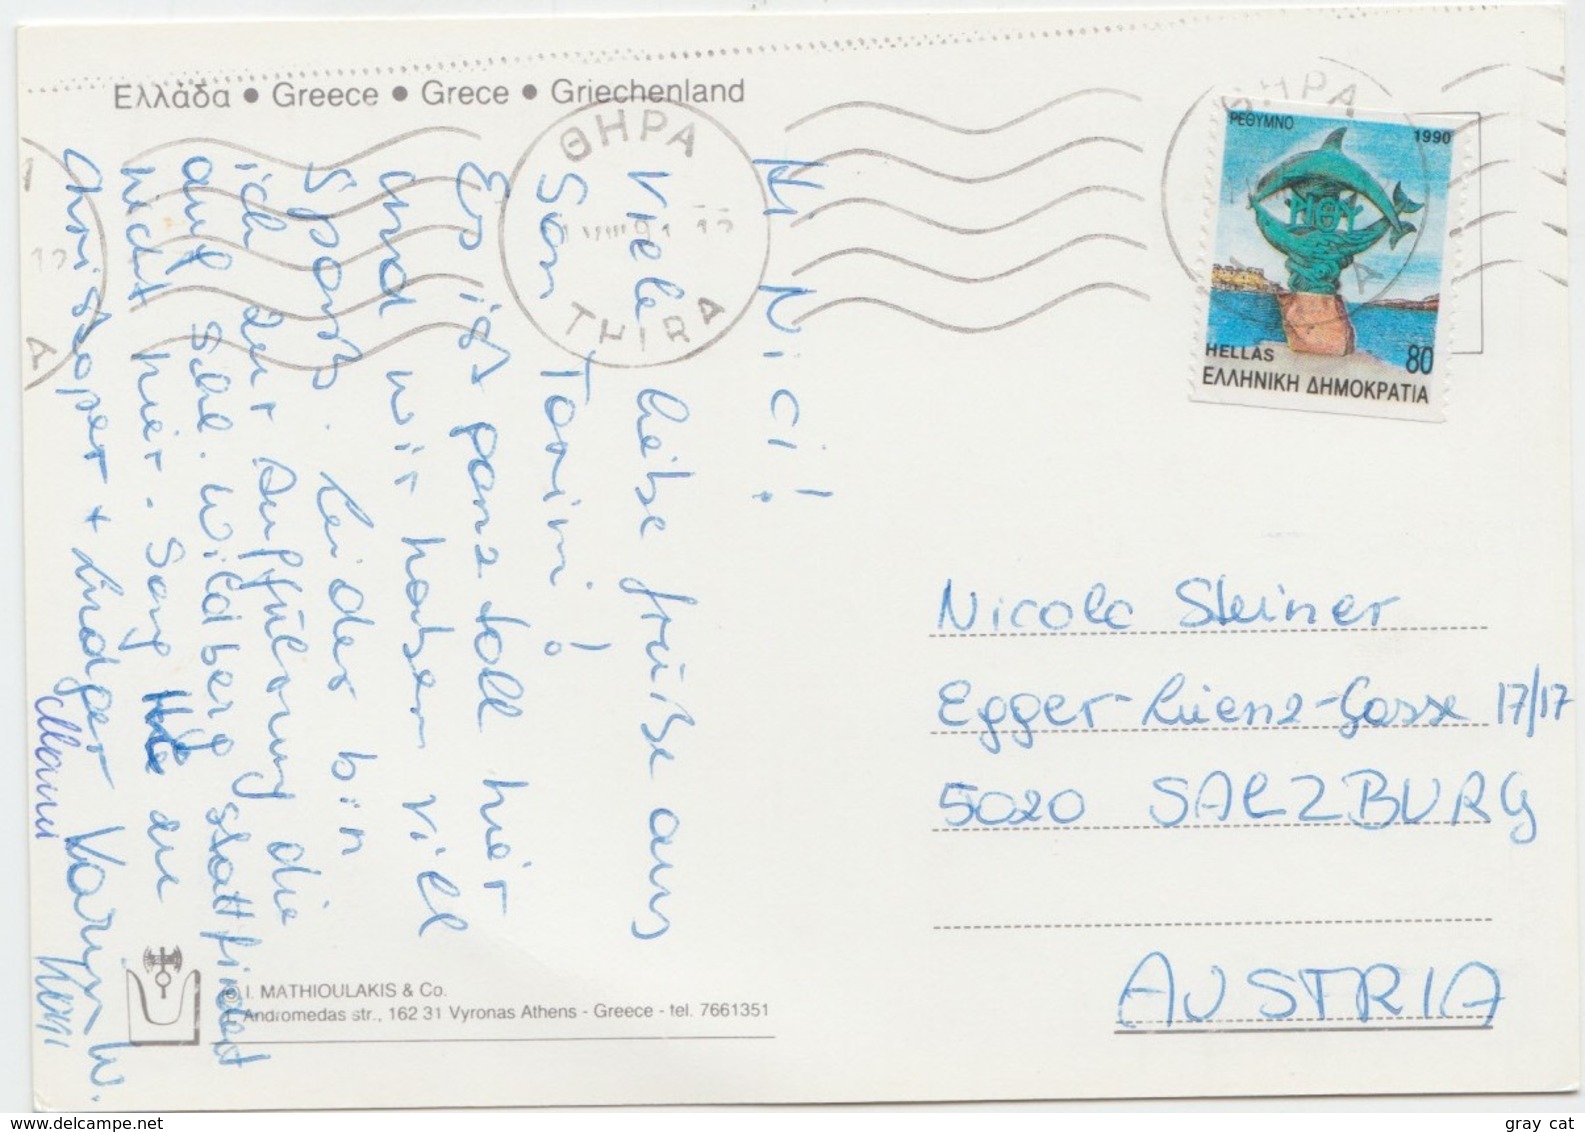 Ελλάδα • Greece • Grece • Griechenland
ΘΗΡΑ
THIRA
ΘΗΡΑ
ΡΕΘΥΜΝΟ 1990
HELLAS 80
ΕΛΛΗΝΙΚΗ ΔΗΜΟΚΡΑΤΙΑ
Hi Nici!
Viele liebe Grüße aus
San Torini!
Es ist ganz toll hier
und wir haben viel
Spaß. Leider bin
ich zur Aufführung die
auf Schl. Wildberg stattfindet
nicht hier. Sag
Christoper + Ludger Karin W.
Nicole Steiner
Egger-Lienz-Gasse 17/17
5020 SALZBURG
AUSTRIA
© I. MATHIOULAKIS & Co.
1, Andromedas str., 162 31 Vyronas Athens - Greece - tel. 7661351
www.delcampe.net
gray cat